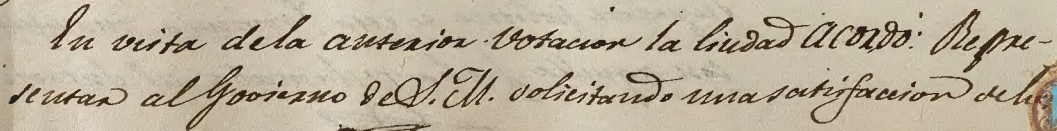 En vista dela anterior votacion la Ciudad acordó: Repre-
sentar al Govierno de S. M. solicitando una satisfaccion de